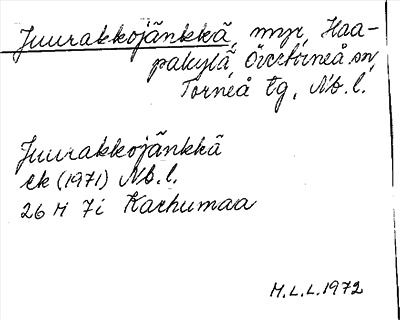 Juurakkojänkkä, myr, Haa-
pakylä, Övertorneå sn,
Torneå tg, Nb.l.
Juurakkojänkkä
ek (1971) Nb.l.
26 M 7i Karhumaa
M.L.L.1972